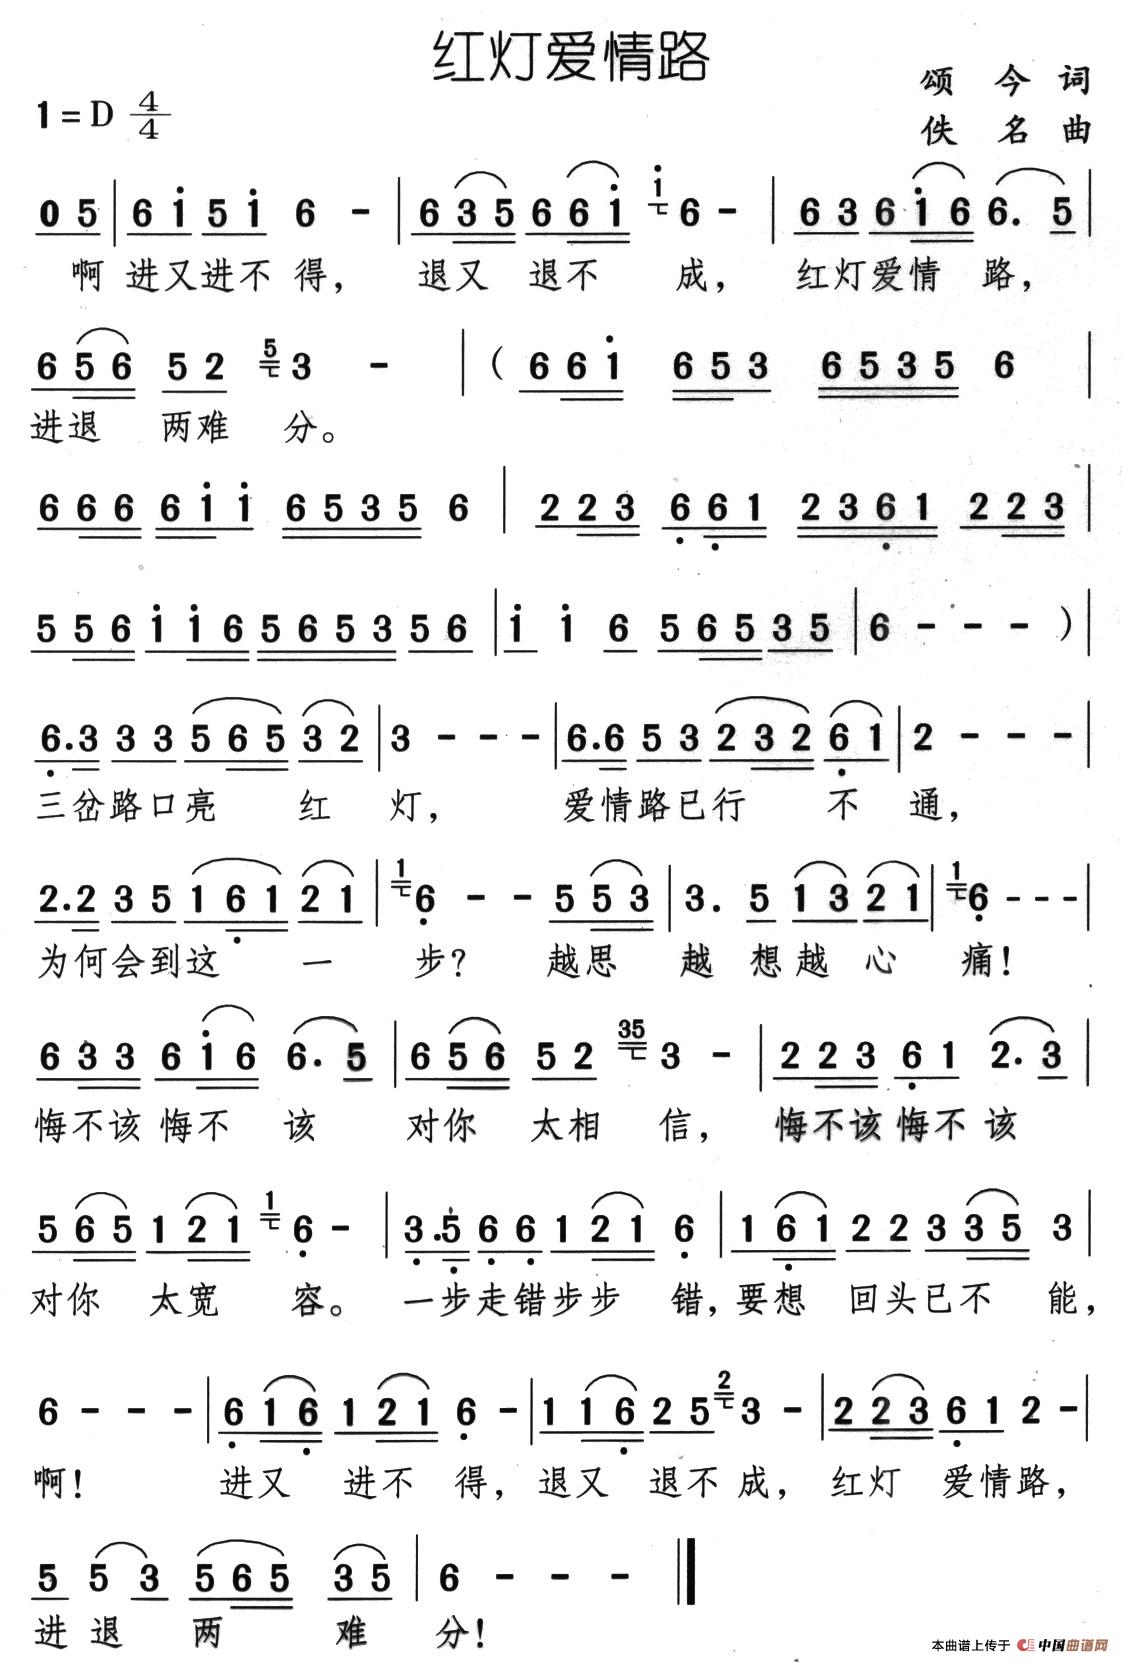 红灯爱情路
1=D 4/4
颂 今 词
佚 名 曲
0 5 | 6 i 5 i 6 - | 6 3 5 6 6 i i 6 - | 6 3 6 i 6 6. 5 |
啊 进又进不 得， 退又 退不 成， 红灯爱情 路，
6 5 6 5 2 5 3 - | ( 6 6 i 6 5 3 6 5 3 5 6 |
进退 两难 分。
6 6 6 6 i i 6 5 3 5 6 | 2 2 3 6 6 1 2 3 6 1 2 2 3 |
5 5 6 i i 6 5 6 5 3 5 6 | i i 6 5 6 5 3 5 | 6 - - - ) |
6. 3 3 3 5 6 5 3 2 | 3 - - - | 6. 6 5 3 2 3 2 6 1 | 2 - - - |
三岔路口亮 红 灯， 爱情路已行 不 通，
2. 2 3 5 1 6 1 2 1 | 1 6 - - 5 5 3 | 3. 5 1 3 2 1 | 1 6 - - - |
为何会到这 一 步？ 越思 越 想越 心 痛！
6 3 3 6 i 6 6. 5 | 6 5 6 5 2 35 3 - | 2 2 3 6 1 2. 3 |
悔不该悔不 该 对你 太相 信， 悔不该悔不 该
5 6 5 1 2 1 1 6 - | 3. 5 6 6 1 2 1 6 | 1 6 1 2 2 3 3 5 3 |
对你 太宽 容。 一步走错步步 错，要想 回头已不 能，
6 - - - | 6 1 6 1 2 1 6 - | 1 1 6 2 5 2 3 - | 2 2 3 6 1 2 - |
啊！ 进又 进不 得，退又 退不成， 红灯 爱情路，
5 5 3 5 6 5 3 5 | 6 - - - ‖
进退 两 难 分！
本曲谱上传于 中国曲谱网